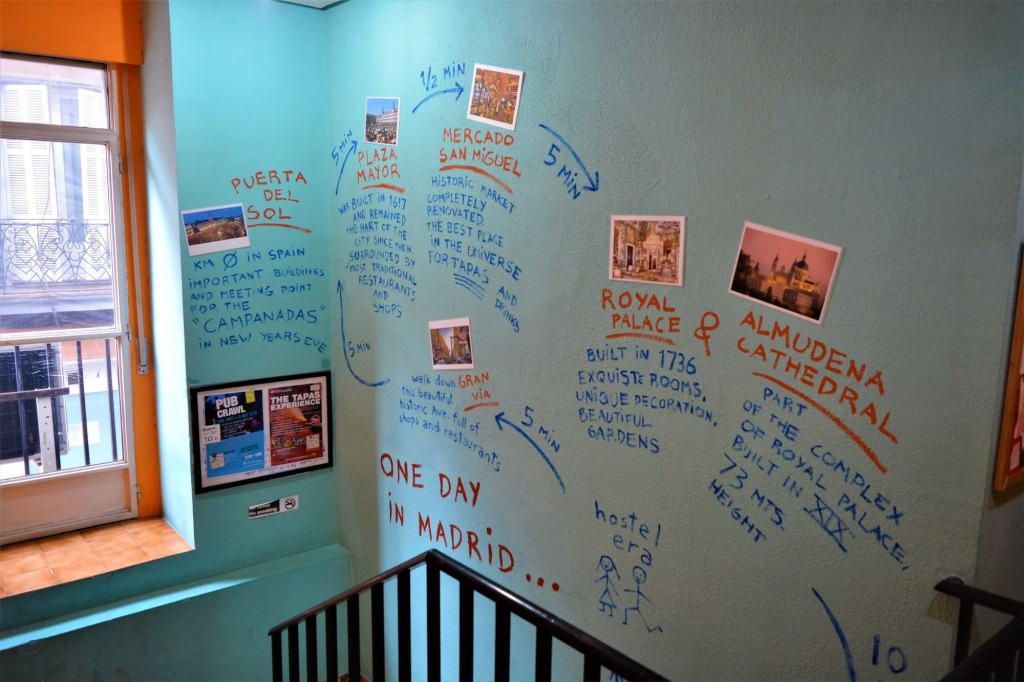 PUERTA
DEL
SOL
KM Ø IN SPAIN
IMPORTANT BUILDINGS
AND MEETING POINT
FOR THE
"CAMPANADAS"
IN NEW YEARS EVE
5 MIN
PLAZA
MAYOR
WAS BUILT IN 1617
AND REMAINED
THE HART OF THE
CITY SINCE THEN,
SURROUNDED BY
MOST TRADITIONAL
RESTAURANTS
AND
SHOPS
1/2 MIN
MERCADO
SAN MIGUEL
HISTORIC MARKET
COMPLETELY
RENOVATED.
THE BEST PLACE
IN THE UNIVERSE
FOR TAPAS AND
DRINKS
5 MIN
ROYAL
PALACE &
BUILT IN 1736
EXQUISTE ROOMS,
UNIQUE DECORATION,
BEAUTIFUL
GARDENS
ALMUDENA
CATHEDRAL
PART
OF THE COMPLEX
OF ROYAL PALACE,
BUILT IN XIX
73 MTS.
HEIGHT
5 MIN
GRAN
VIA
walk down
this beautiful
historic Ave. full of
shops and restaurants
5 MIN
ONE DAY
iN MADRiD...
hostel
era
10
PUB
CRAWL
THE TAPAS
EXPERIENCE
No smoking